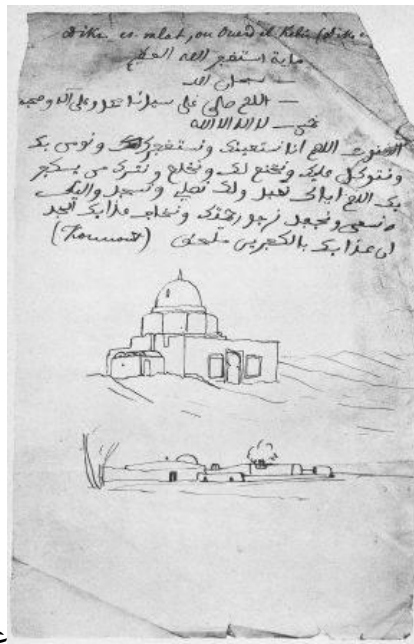 Dikr es salat, ou Ouerd el Kebir (dikr e
ماية استغفر الله العظيم
— سبحان الله
— اللهم صلي على سيدنا محمد وعلى آله وصحبه
لا اله الا الله
القنوت اللهم انا نستعينك ونستغفرك ونومن بك
ونتوكل عليك ونخنع لك ونخلع ونترك من يكفر
بك اللهم اياك نعبد ولك نصلي ونسجد واليك
نسعى ونحفد نرجو رحمتك ونخاف عذابك الجد
ان عذابك بالكفرين ملحق (Kounout)